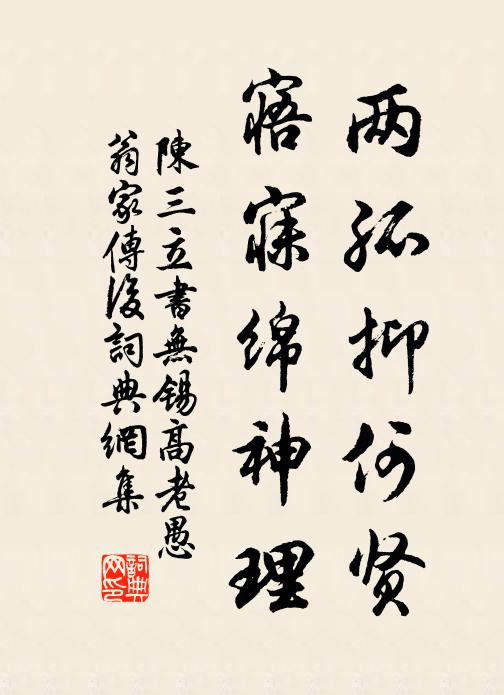 两孤抑何贤
寤寐绵神理
陳三立書無锡高老愚
翁家傳後詞典網集
詞典
网印